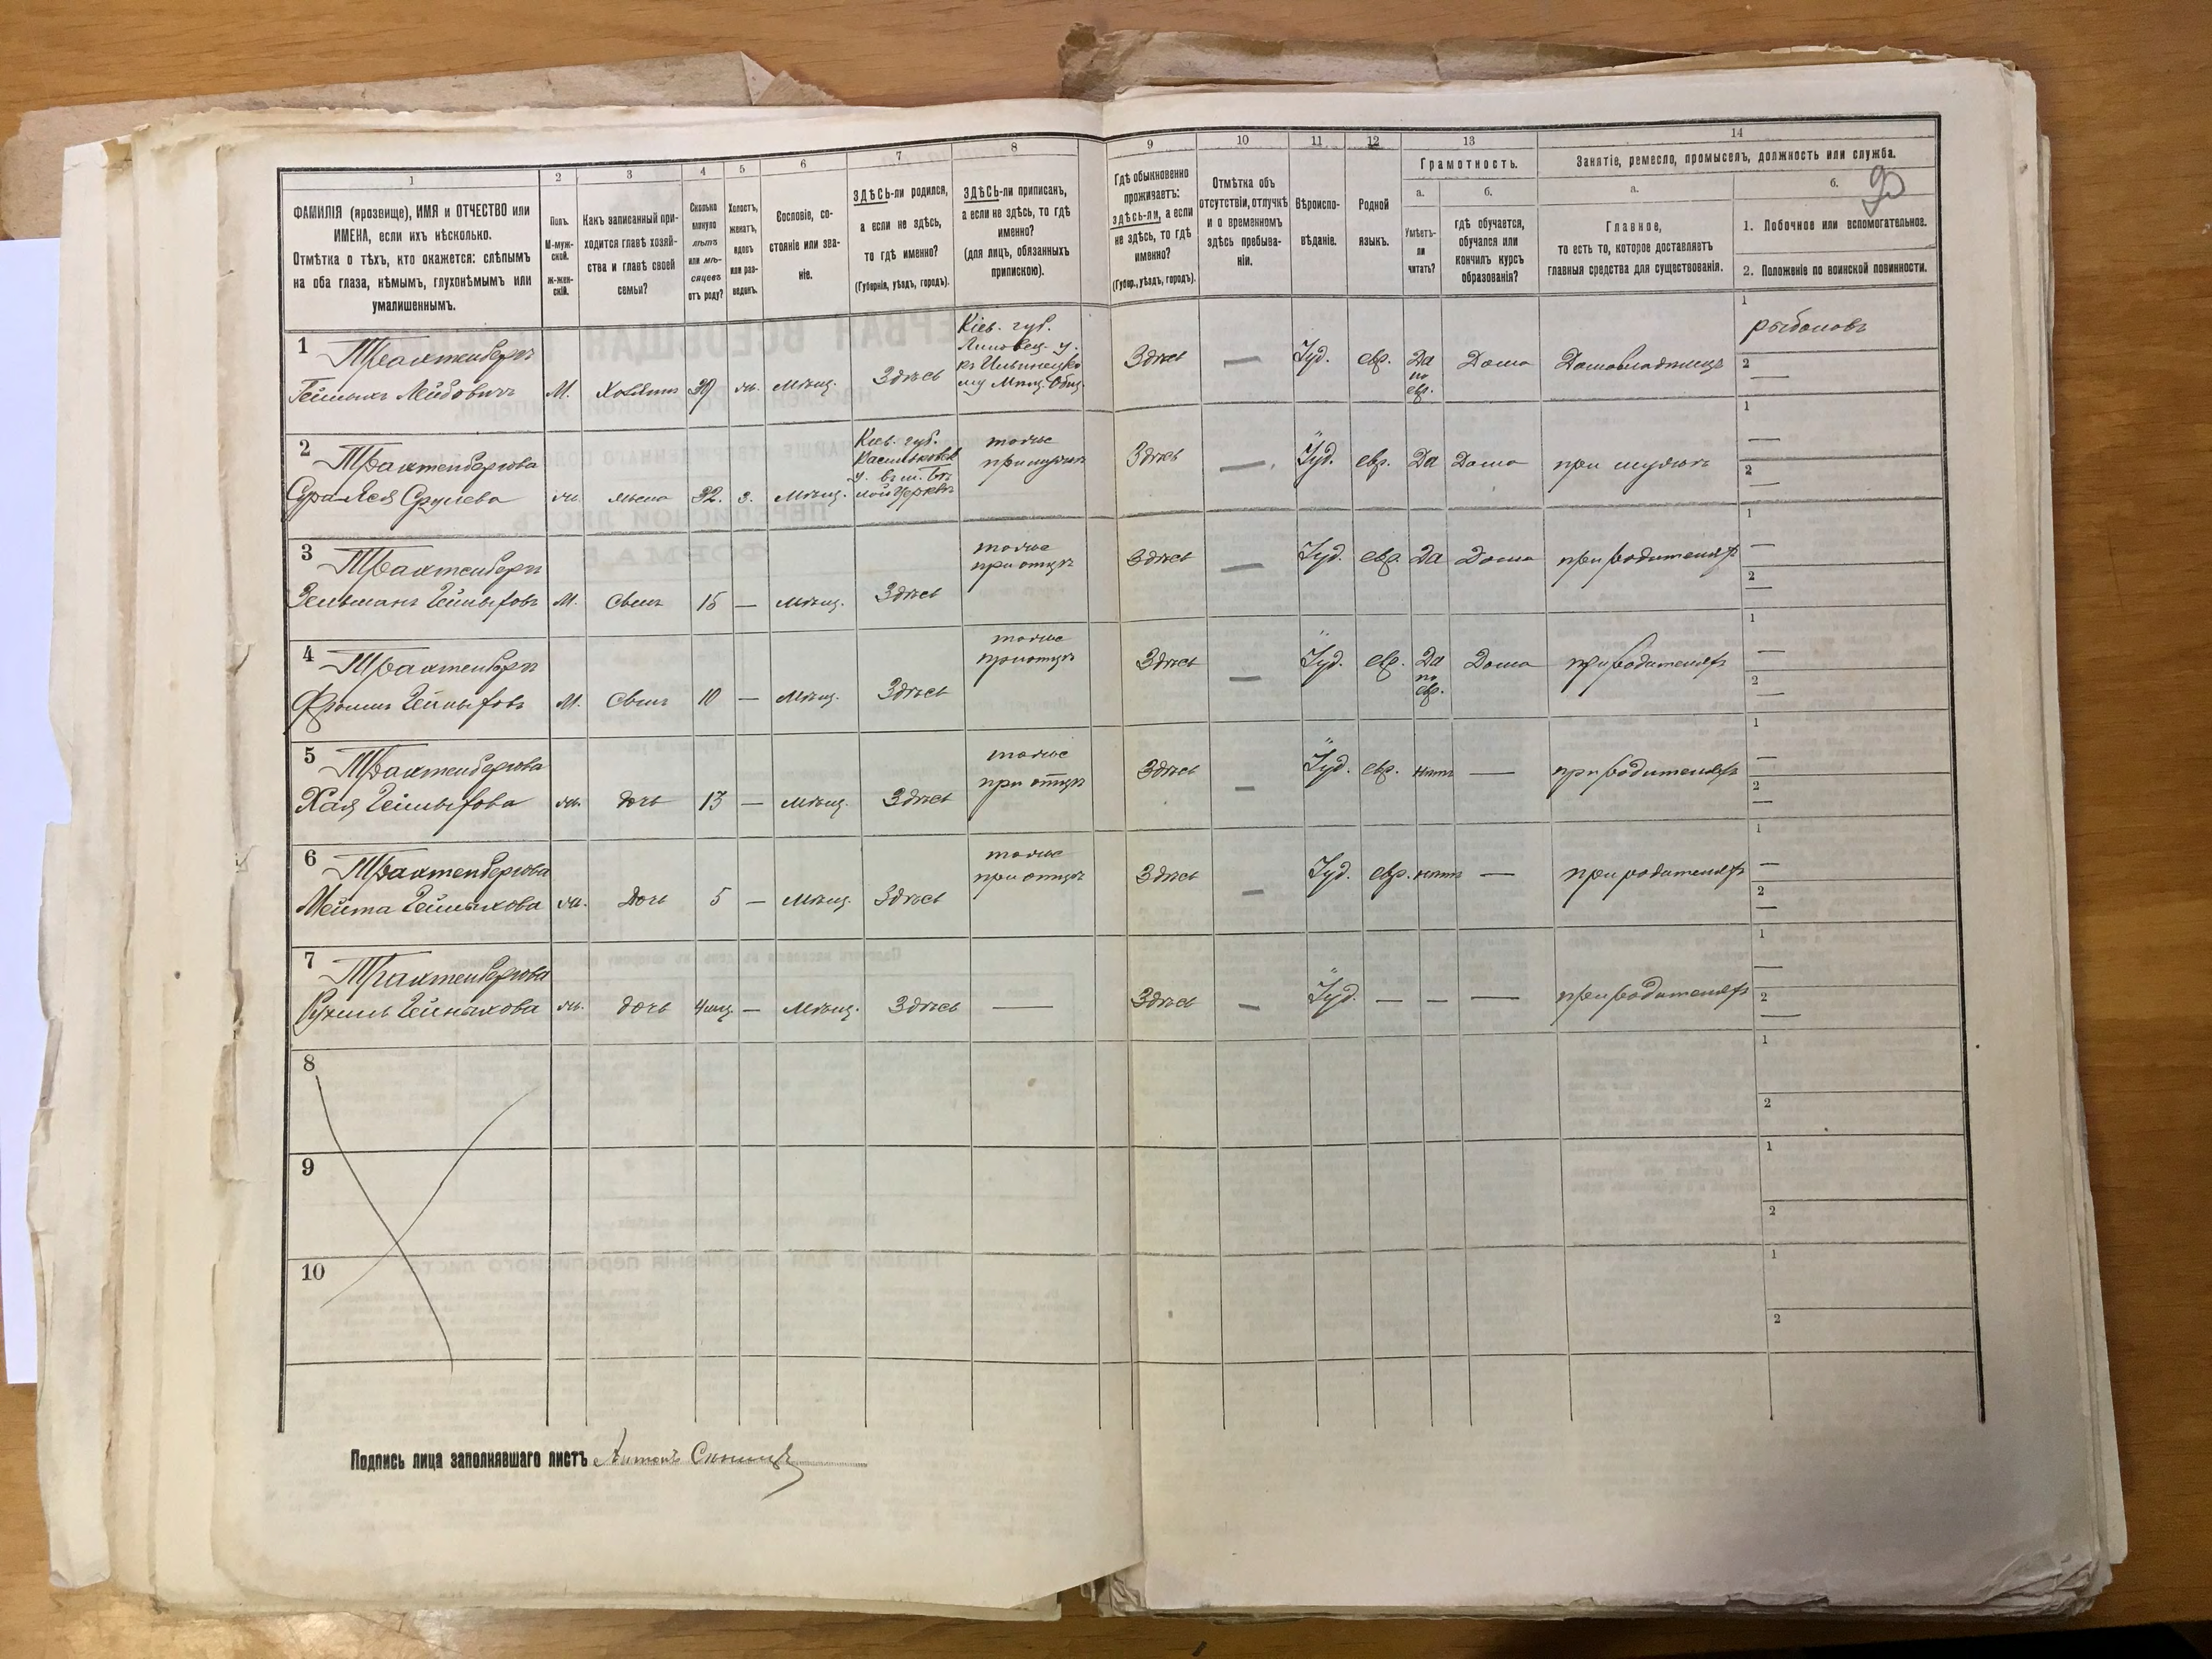 1
2
3
4
5
6
7
8
9
10
11
12
13
14
ФАМИЛІЯ (прозвище), ИМЯ и ОТЧЕСТВО или
ИМЕНА, если ихъ нѣсколько.
Отмѣтка о тѣхъ, кто окажется: слѣпымъ
на оба глаза, нѣмымъ, глухонѣмымъ или
умалишеннымъ.
Полъ.
М-муж-
ской.
Ж-жен-
скій.
Какъ записанный при-
ходится главѣ хозяй-
ства и главѣ своей
семьи?
Сколько
минуло
лѣтъ
или мѣ-
сяцевъ
отъ роду?
Холостъ,
женатъ,
вдовъ
или раз-
веденъ.
Сословіе, со-
стояніе или зва-
ніе.
ЗДѢСЬ-ли родился,
а если не здѣсь,
то гдѣ именно?
(Губернія, уѣздъ, городъ).
ЗДѢСЬ-ли приписанъ,
а если не здѣсь, то гдѣ
именно?
(для лицъ, обязанныхъ
припискою).
Гдѣ обыкновенно
проживаетъ:
здѣсь-ли, а если
не здѣсь, то гдѣ
именно?
(Губер., уѣздъ, городъ).
Отмѣтка объ
отсутствіи, отлучкѣ
и о временномъ
здѣсь пребыва-
ніи.
Вѣроиспо-
вѣданіе.
Родной
языкъ.
Грамотность.
а.
б.
Умѣетъ-
ли
читать?
гдѣ обучается,
обучался или
кончилъ курсъ
образованія?
Занятіе, ремесло, промыселъ, должность или служба.
а.
б.
90
Главное,
то есть то, которое доставляетъ
главныя средства для существованія.
1. Побочное или вспомогательное.
2. Положеніе по воинской повинности.
1 Трахтенбергъ
Гейныхъ Лейбовичъ
М. Хозяинъ 39 ж. Мѣщ. Здѣсь
Кіев. губ.
Липовец. у.
къ Ильинецко
му Мѣщ. Общ.
Здѣсь — Іуд. евр. Да
по
евр.
Дома Домовладѣлецъ
1 рыболовъ
2 —
2 Трахтенбергова
Сура-Лея Срулева
ж. жена 32. з. Мѣщ.
Кіев. губ.
Васильковск
у. въ м. Бѣ
лой Церквѣ
тоже
при мужѣ
Здѣсь — Іуд. евр. Да Дома при мужѣ
1 —
2 —
3 Трахтенбергъ
Зельманъ Гейныховъ
М. Сынъ 15 — Мѣщ. Здѣсь
тоже
при отцѣ
Здѣсь — Іуд. евр. Да Дома при родителяхъ
1 —
2 —
4 Трахтенбергъ
Фроимъ Гейныховъ
М. Сынъ 10 — Мѣщ. Здѣсь
тоже
при отцѣ
Здѣсь — Іуд. евр. Да
по
евр.
Дома при родителяхъ
1 —
2 —
5 Трахтенбергова
Хая Гейныхова
ж. дочь 13 — Мѣщ. Здѣсь
тоже
при отцѣ
Здѣсь — Іуд. евр. нѣтъ — при родителяхъ
1 —
2 —
6 Трахтенбергова
Мейта Гейныхова
ж. Дочь 5 — Мѣщ. Здѣсь
тоже
при отцѣ
Здѣсь — Іуд. евр. нѣтъ — при родителяхъ
1 —
2 —
7 Трахтенбергова
Рухиль Гейныхова
ж. дочь 4 мѣц — Мѣщ. Здѣсь —
Здѣсь — Іуд. — — — при родителяхъ
1 —
2 —
8
1
2
9
1
2
10
1
2
Подпись лица заполнявшаго листъ Антонъ